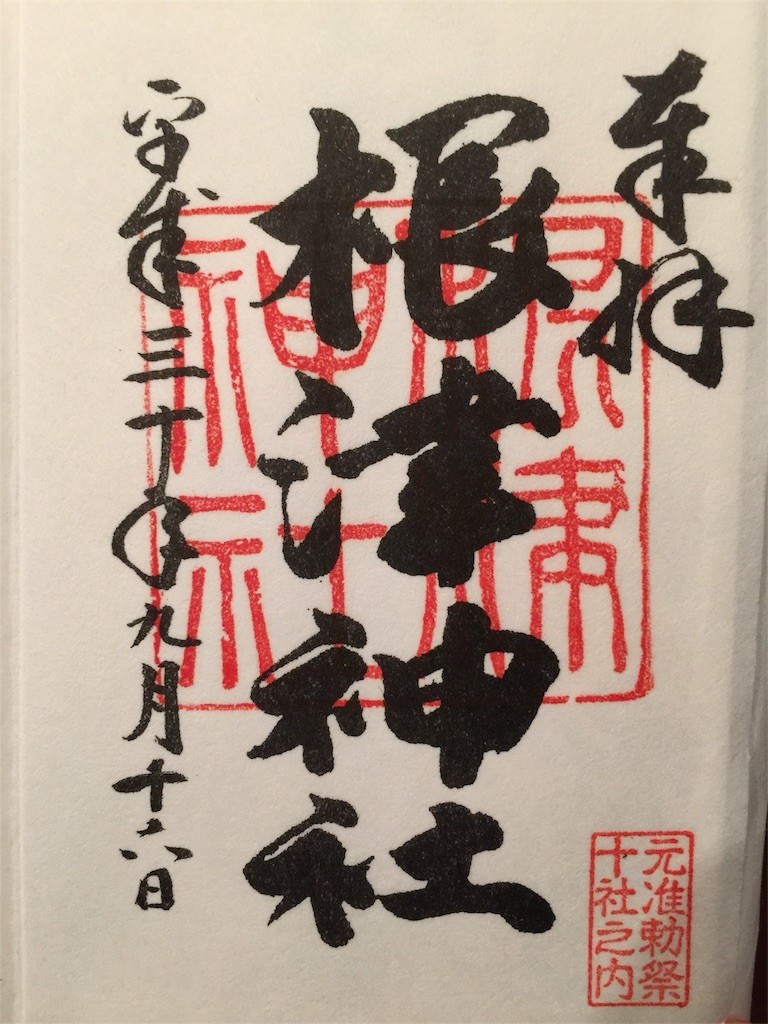 奉拝
根津神社
平成三十年九月十六日
根津
神社
元准勅祭
十社之内